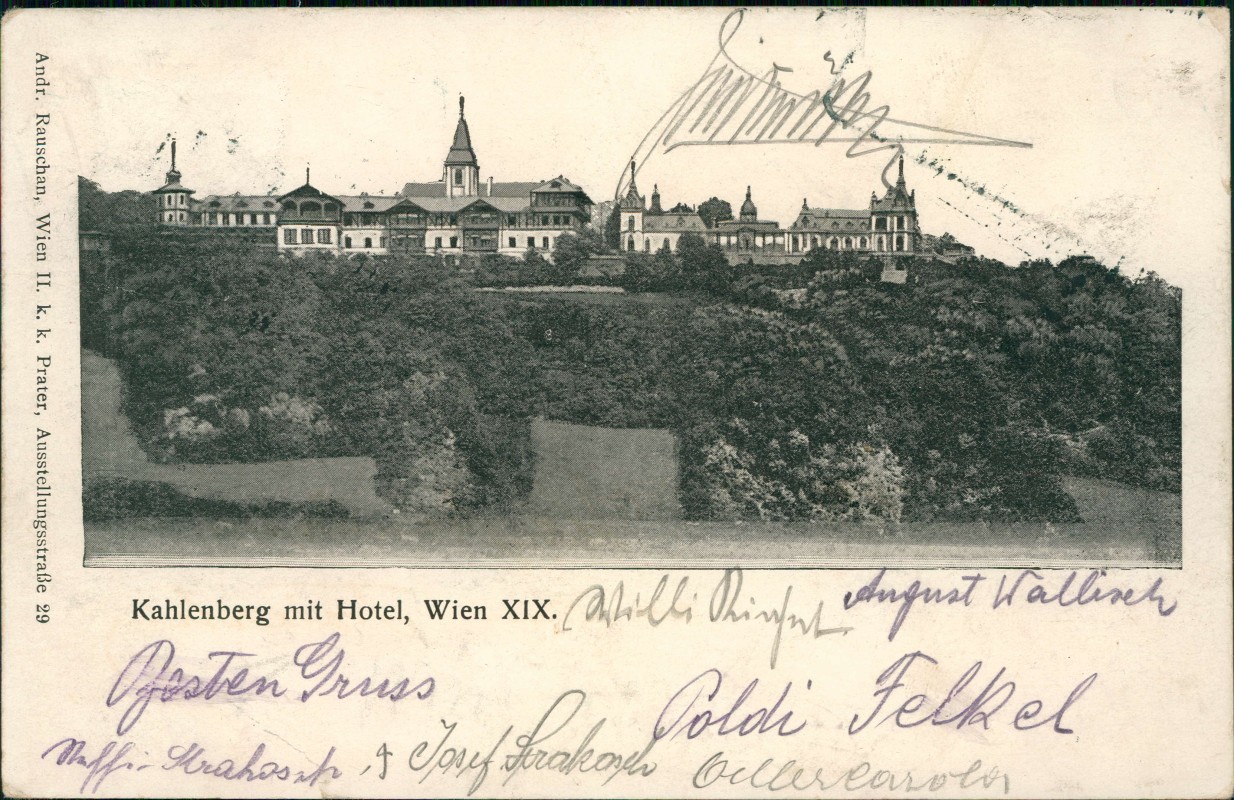 Andr. Rauschan, Wien II. k. k. Prater, Ausstellungsstraße 29
Kahlenberg mit Hotel, Wien XIX.
Willi
August Wallisch
Gruss
Poldi Felkel
Strakosch
Josef Strakosch